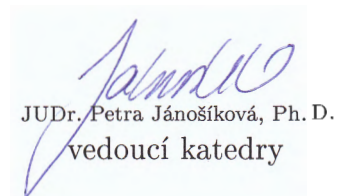 JUDr. Petra Jánošíková, Ph. D.
vedoucí katedry